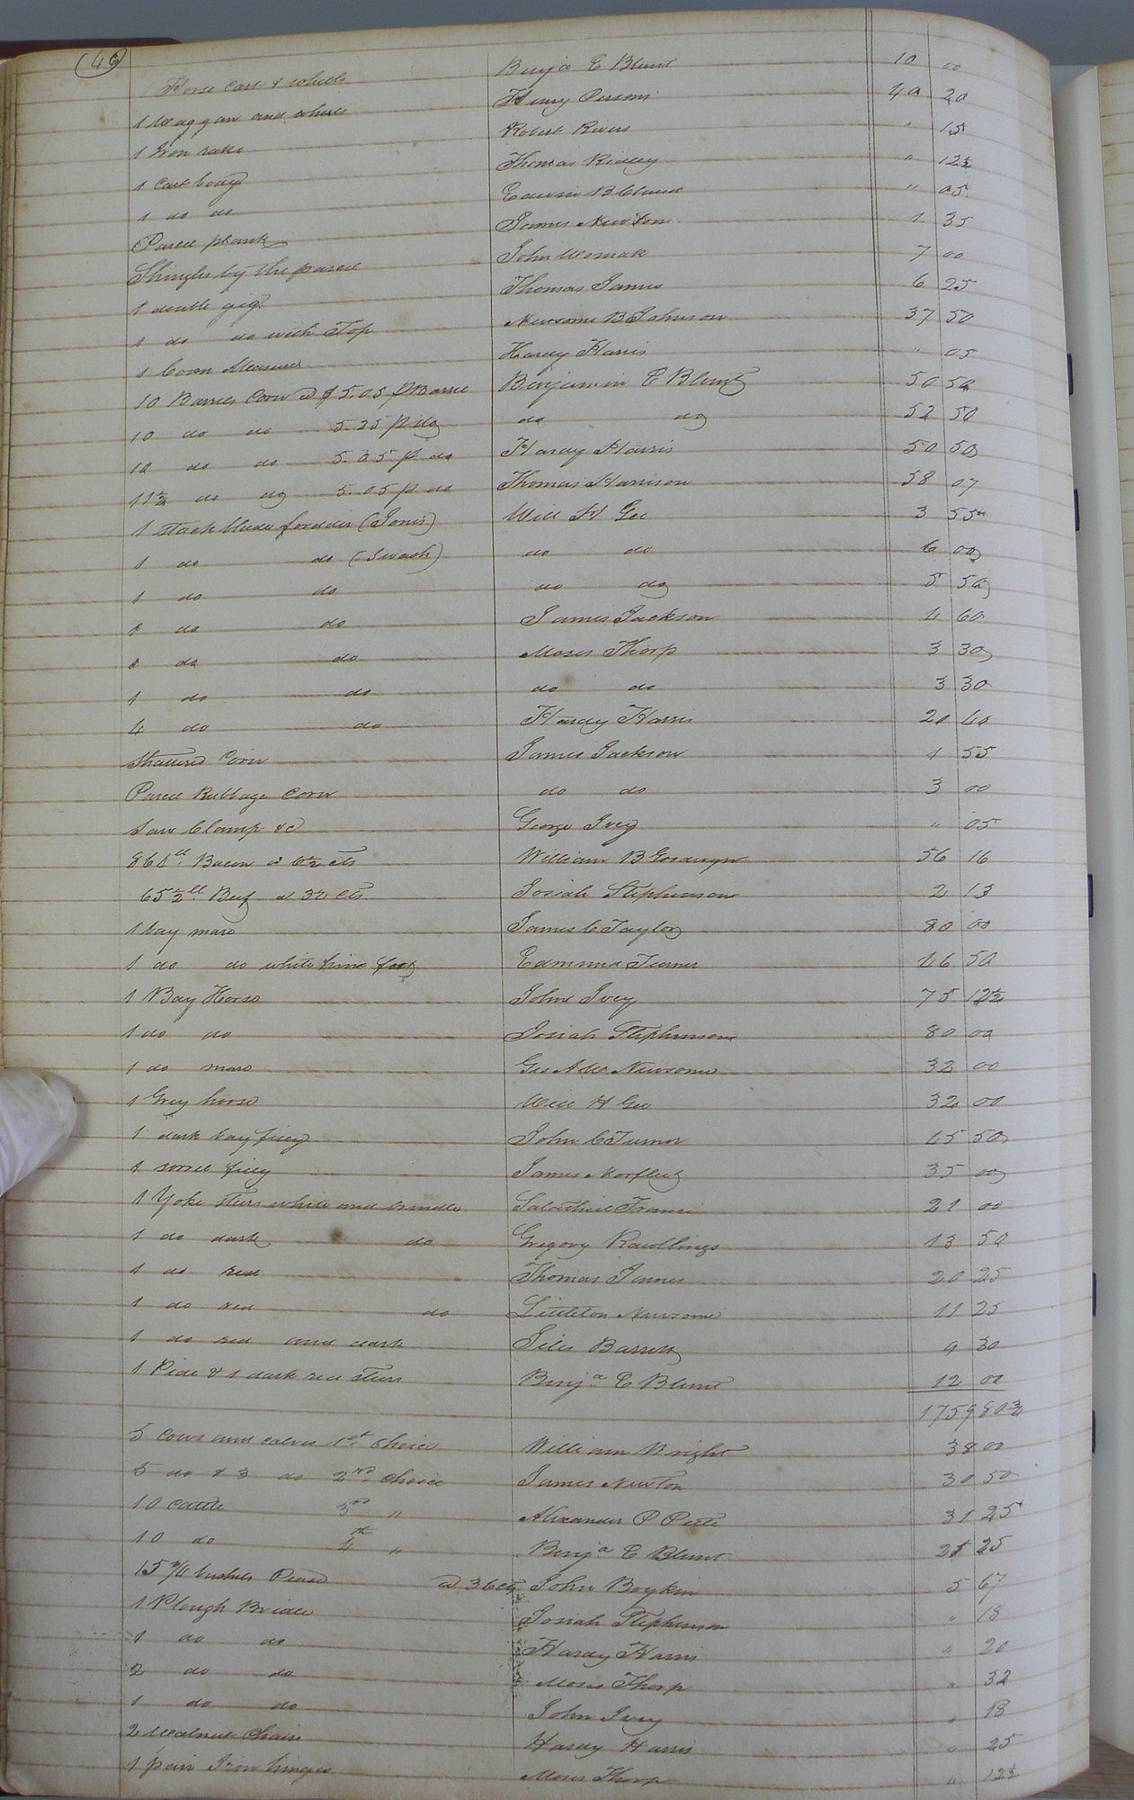 46
Horse cart & wheels Benja E Blunt 10 00
1 Waggon and wheels Henry Persons 40 20
1 Iron rake Robert Rivers " 15
1 Cart body Thomas Ridley " 12½
1 do do Edwin B Claud " 05
Parcel plank James Newton 1 35
Shingles by the parcel John Womak 7 00
1 double gig Thomas James 6 25
1 do do with Top Newsome B Johnson 37 50
1 Corn Measure Hardy Harris " 05
10 Barrels Corn @ $5.05 p Barrel Benjamin E Blunt 50 50
10 do do 5.25 p do do do 52 50
10 do do 5.05 p do Hardy Harris 50 50
11½ do do 5.05 p do Thomas Harrison 58 07
1 stack blade fodder (Jonis) Will H Gee 3 55
1 do do (Swash) do do 6 00
1 do do do do 5 50
1 do do James Jackson 4 60
1 do do Moses Thorp 3 30
1 do do do do 3 30
4 do do Hardy Harris 20 40
Shattered Corn James Jackson 1 55
Parcel Rubbage Corn do do 3 00
1 saw Clamp &c George Ivey " 05
864 lb Bacon @ 6½ cts William B Goodwyn 56 16
65½ lb Beef at 3¼ cts Josiah Stephenson 2 13
1 bay mare James C Taylor 80 00
1 do do white hind foot Edmund Turner 46 50
1 Bay Horse John Ivey 75 12½
1 do do Josiah Stephenson 80 00
1 do mare Geo A W Newsome 32 00
1 Grey horse Will H Gee 32 00
1 dark bay filly John C Turner 45 50
1 sorrel filly James Norfleet 35 00
1 Yoke steers white and brindle Salathiel Francis 21 00
1 do dark do Gregory Rawlings 13 50
1 do red Thomas Turner 20 25
1 do red do Littleton Newsome 11 25
1 do red and dark Giles Barrett 9 30
1 Pide & 1 dark red steers Benja E Blunt 12 00
1759 80¾
5 Cows and calves 1st Choice William Bright 38 00
5 do & 3 do 2nd Choice James Newton 30 50
10 Cattle 3rd " Alexander P Peete 31 25
10 do 4th " Benja E Blunt 25 25
15¾ bushels Pease @ 36 cts John Boykin 5 67
1 Plough Bridle Josiah Stephenson " 18
1 do do Hardy Harris " 20
2 do do Moses Thorp " 32
1 do do John Ivey " 18
2 Walnut Chairs Hardy Harris " 25
1 pair Iron hinges Moses Thorp " 12½